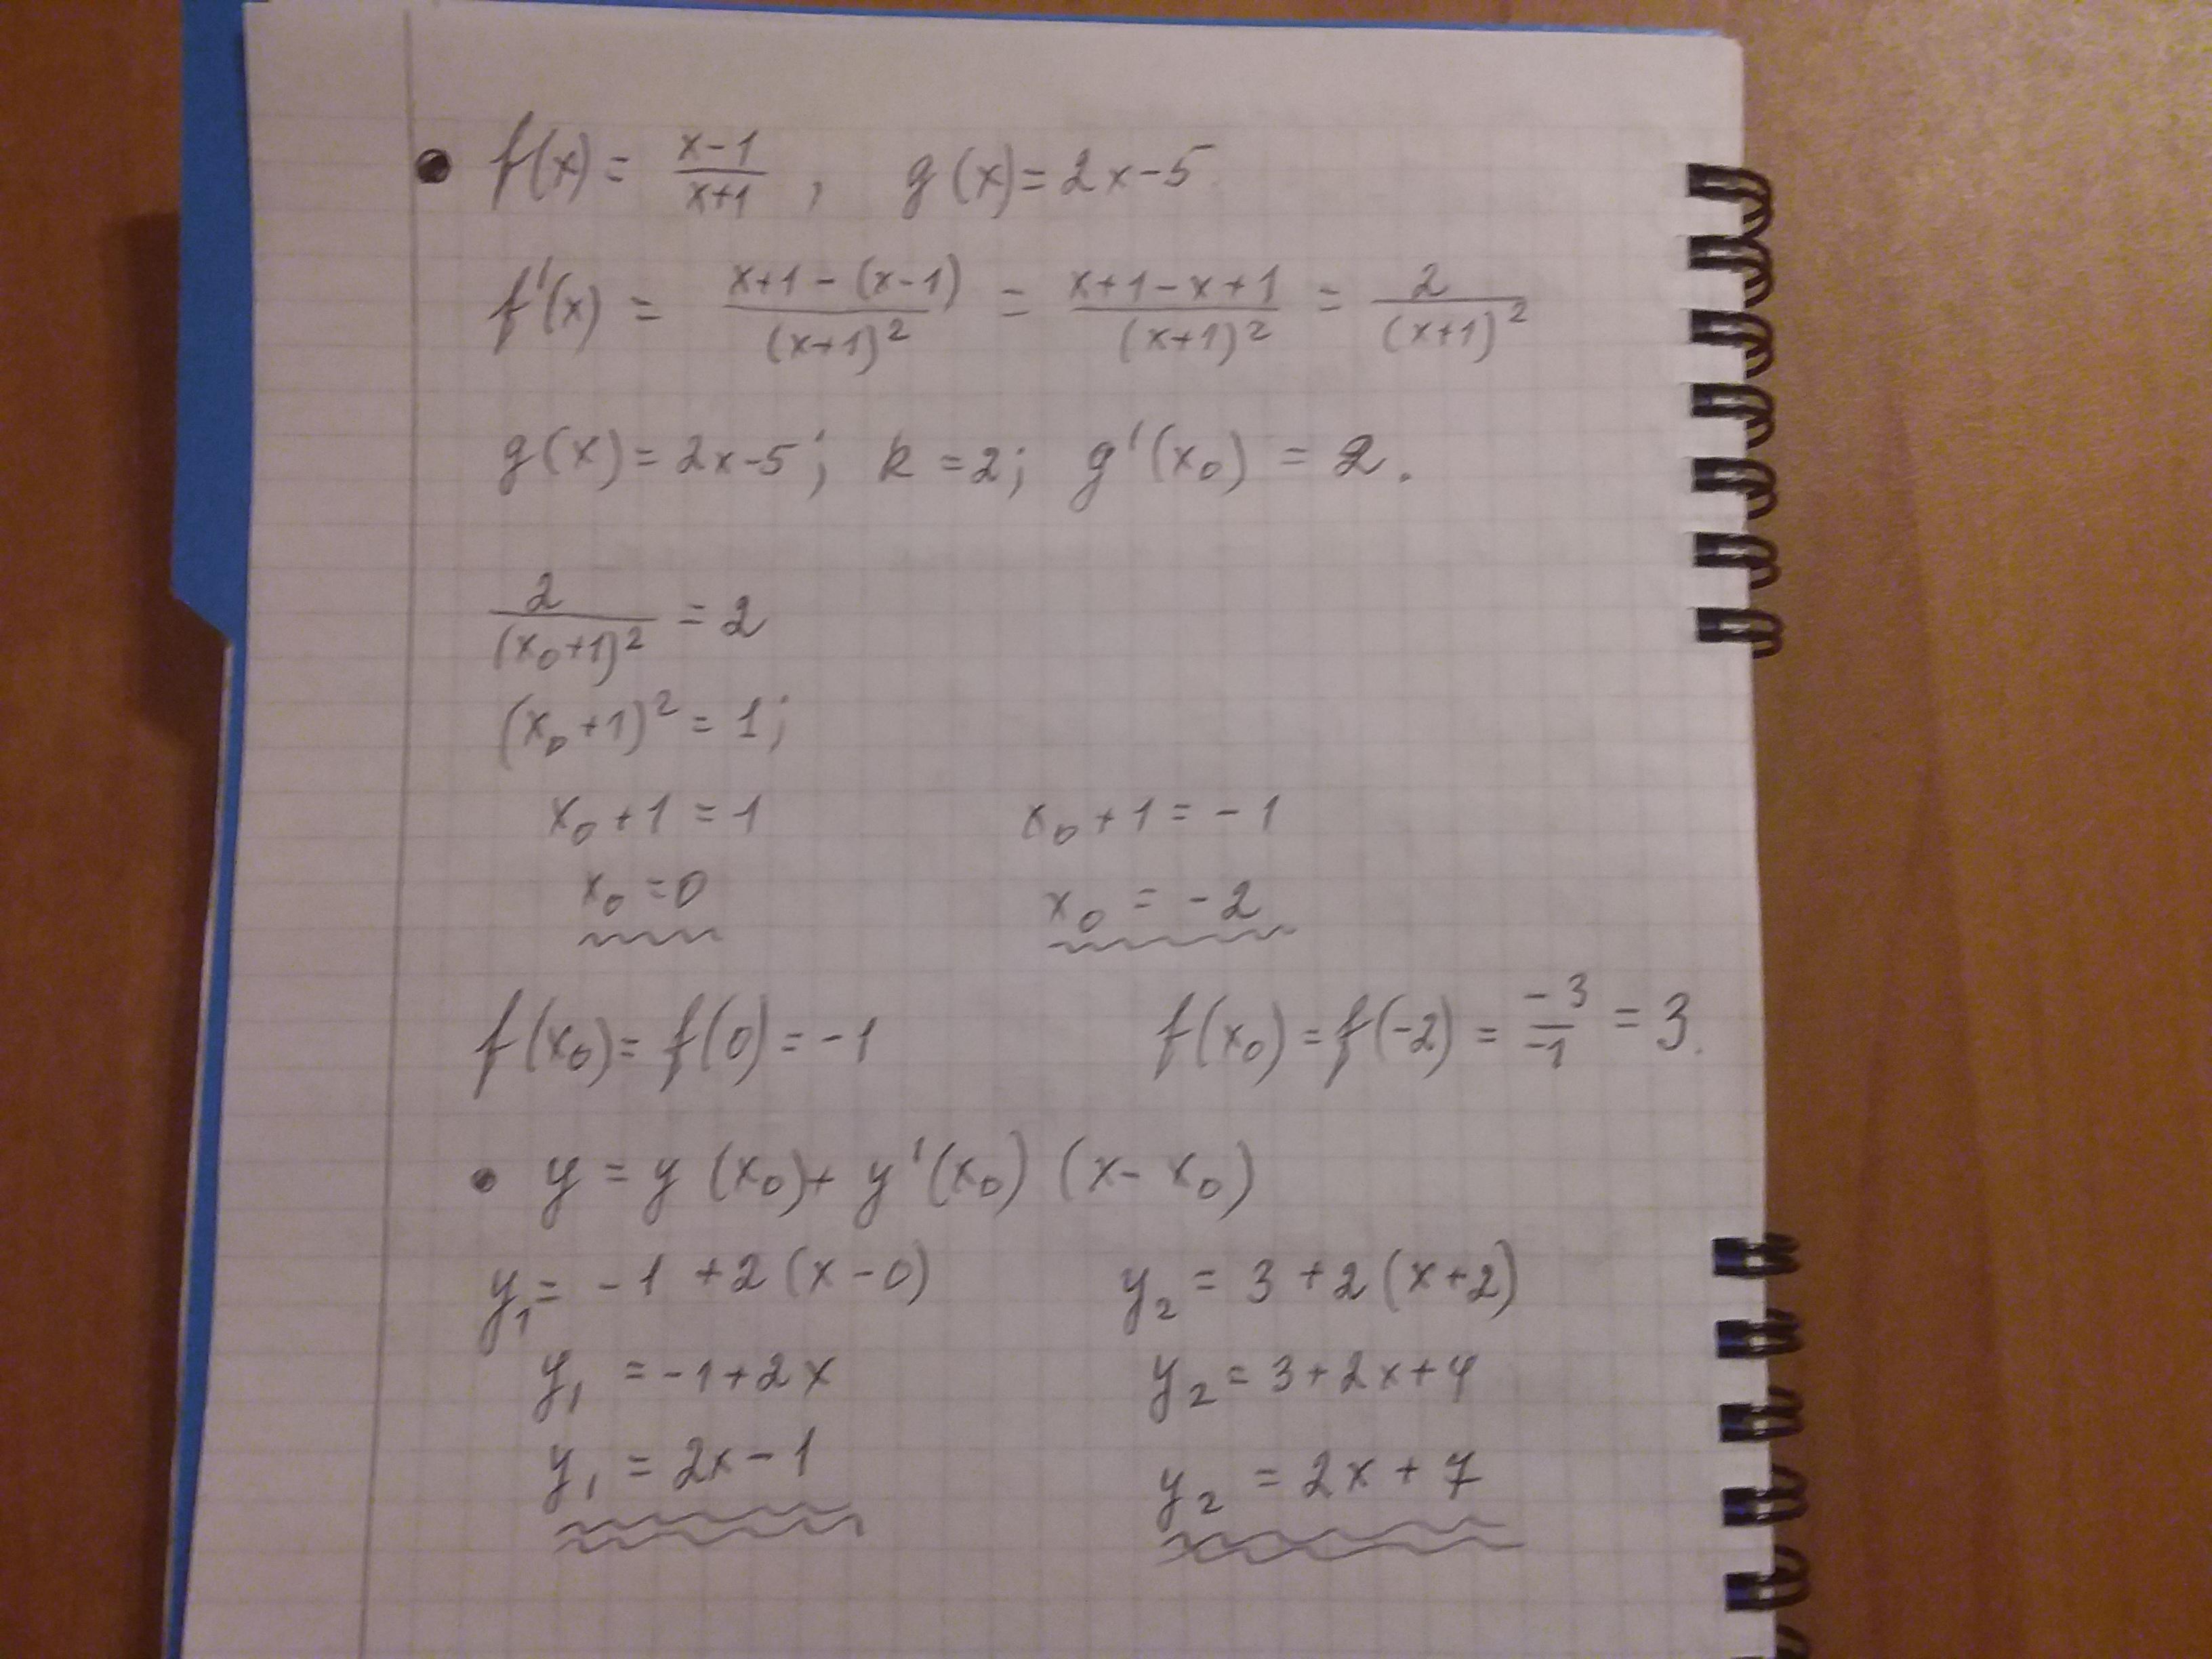 • f(x) = (x-1)/(x+1) , g(x) = 2x-5
f'(x) = (x+1-(x-1))/(x+1)² = (x+1-x+1)/(x+1)² = 2/(x+1)²
g(x) = 2x-5; k = 2; g'(x₀) = 2.
2/(x₀+1)² = 2
(x₀+1)² = 1;
x₀+1 = 1 x₀+1 = -1
x₀ = 0 x₀ = -2
f(x₀) = f(0) = -1 f(x₀) = f(-2) = -3/-1 = 3.
• y = y(x₀) + y'(x₀) (x-x₀)
y₁ = -1 + 2(x-0) y₂ = 3 + 2(x+2)
y₁ = -1+2x y₂ = 3+2x+4
y₁ = 2x-1 y₂ = 2x+7